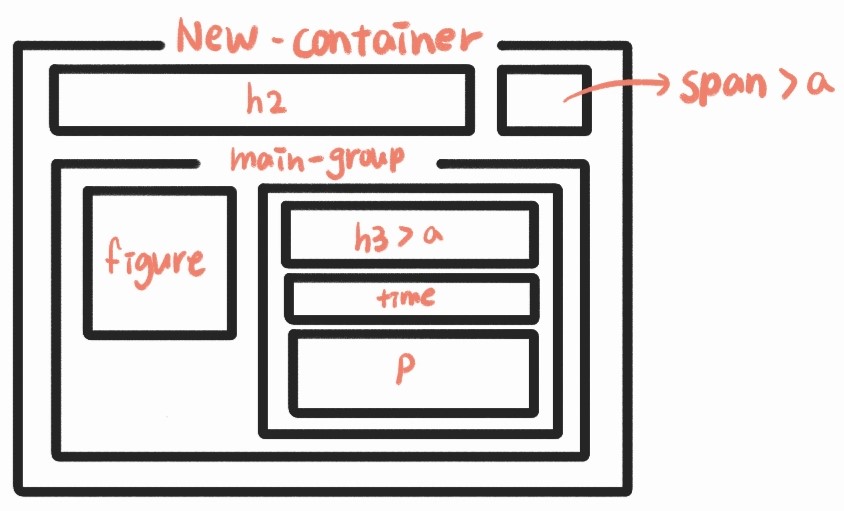 New-container
h2
span > a
main-group
figure
h3 > a
time
p